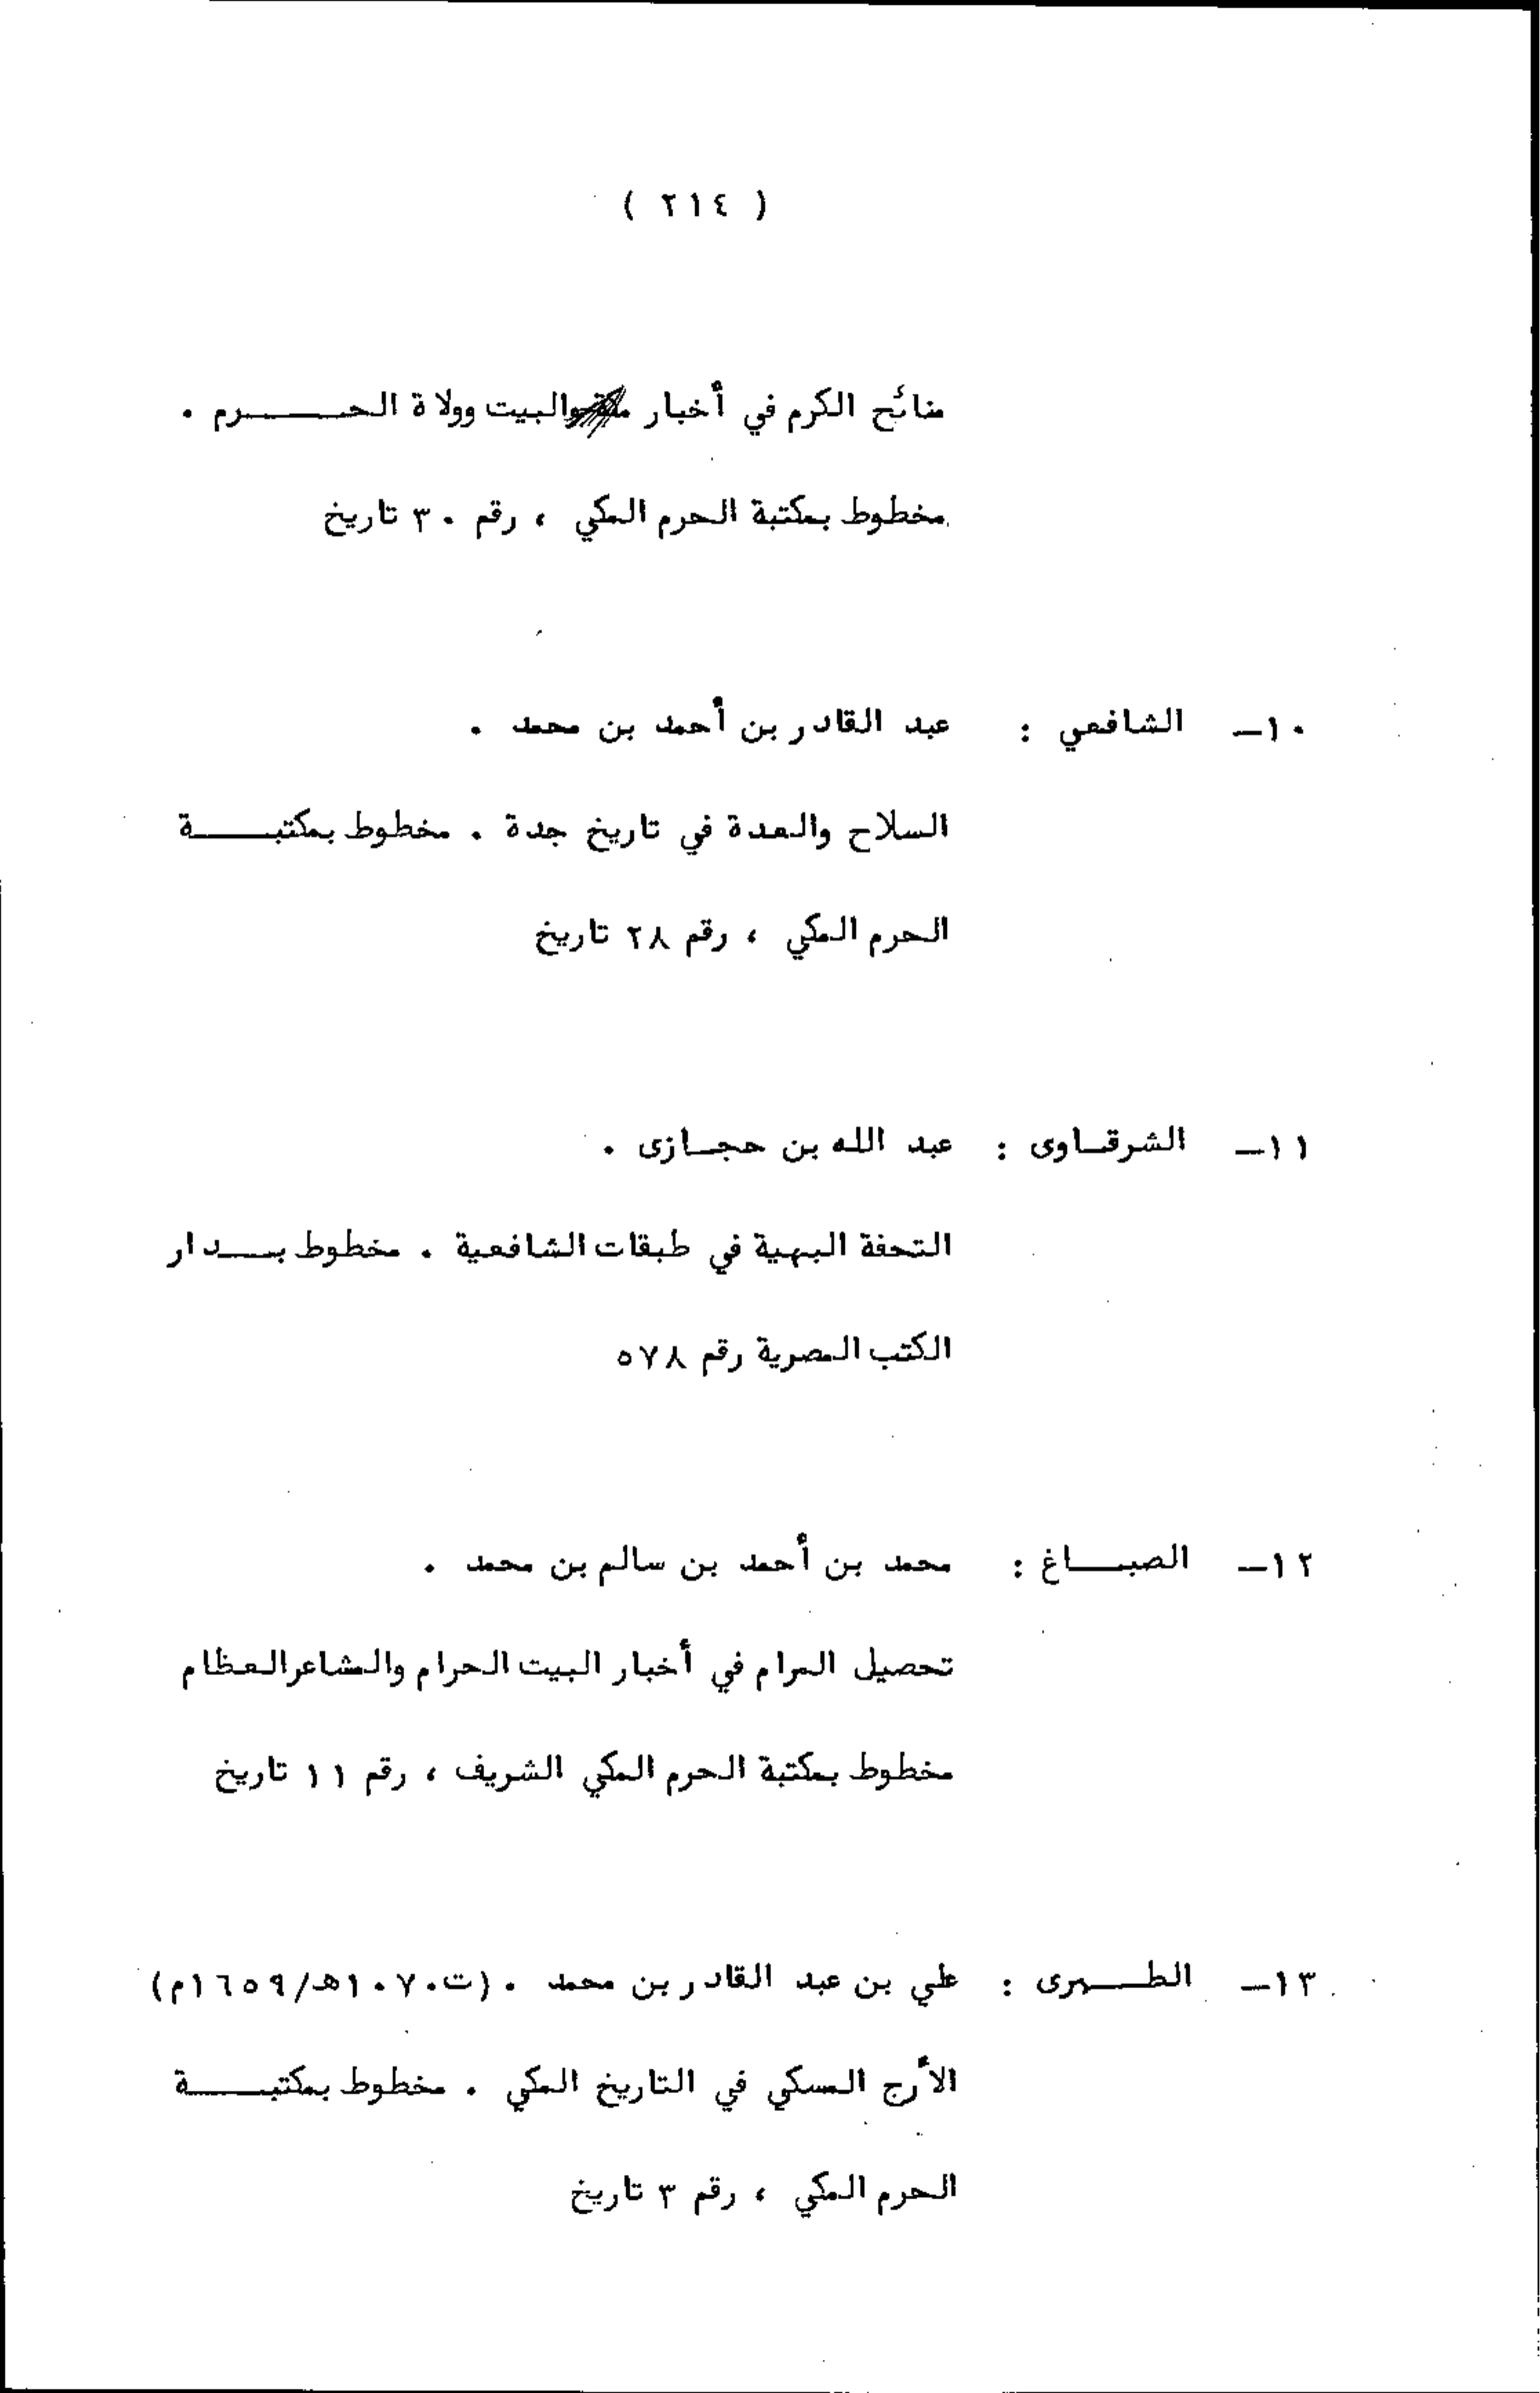 ( ٢١٤ )
منائح الكرم في أخبار البيت وولاة الحرم .
مخطوط بمكتبة الحرم المكي ، رقم ٣٠ تاريخ
١٠- الشافعي : عبد القادر بن أحمد بن محمد .
السلاح والعدة في تاريخ جدة . مخطوط بمكتبة
الحرم المكي ، رقم ٢٨ تاريخ
١١- الشرقاوى : عبد الله بن حجازى .
التحفة البهية في طبقات الشافعية . مخطوط بدار
الكتب المصرية رقم ٥٧٨
١٢- الصباغ : محمد بن أحمد بن سالم بن محمد .
تحصيل المرام في أخبار البيت الحرام والمشاعر العظام
مخطوط بمكتبة الحرم المكي الشريف ، رقم ١١ تاريخ
١٣- الطبرى : علي بن عبد القادر بن محمد . (ت١٠٧٠هـ/١٦٥٩م)
الأرج المسكي في التاريخ المكي . مخطوط بمكتبة
الحرم المكي ، رقم ٣ تاريخ